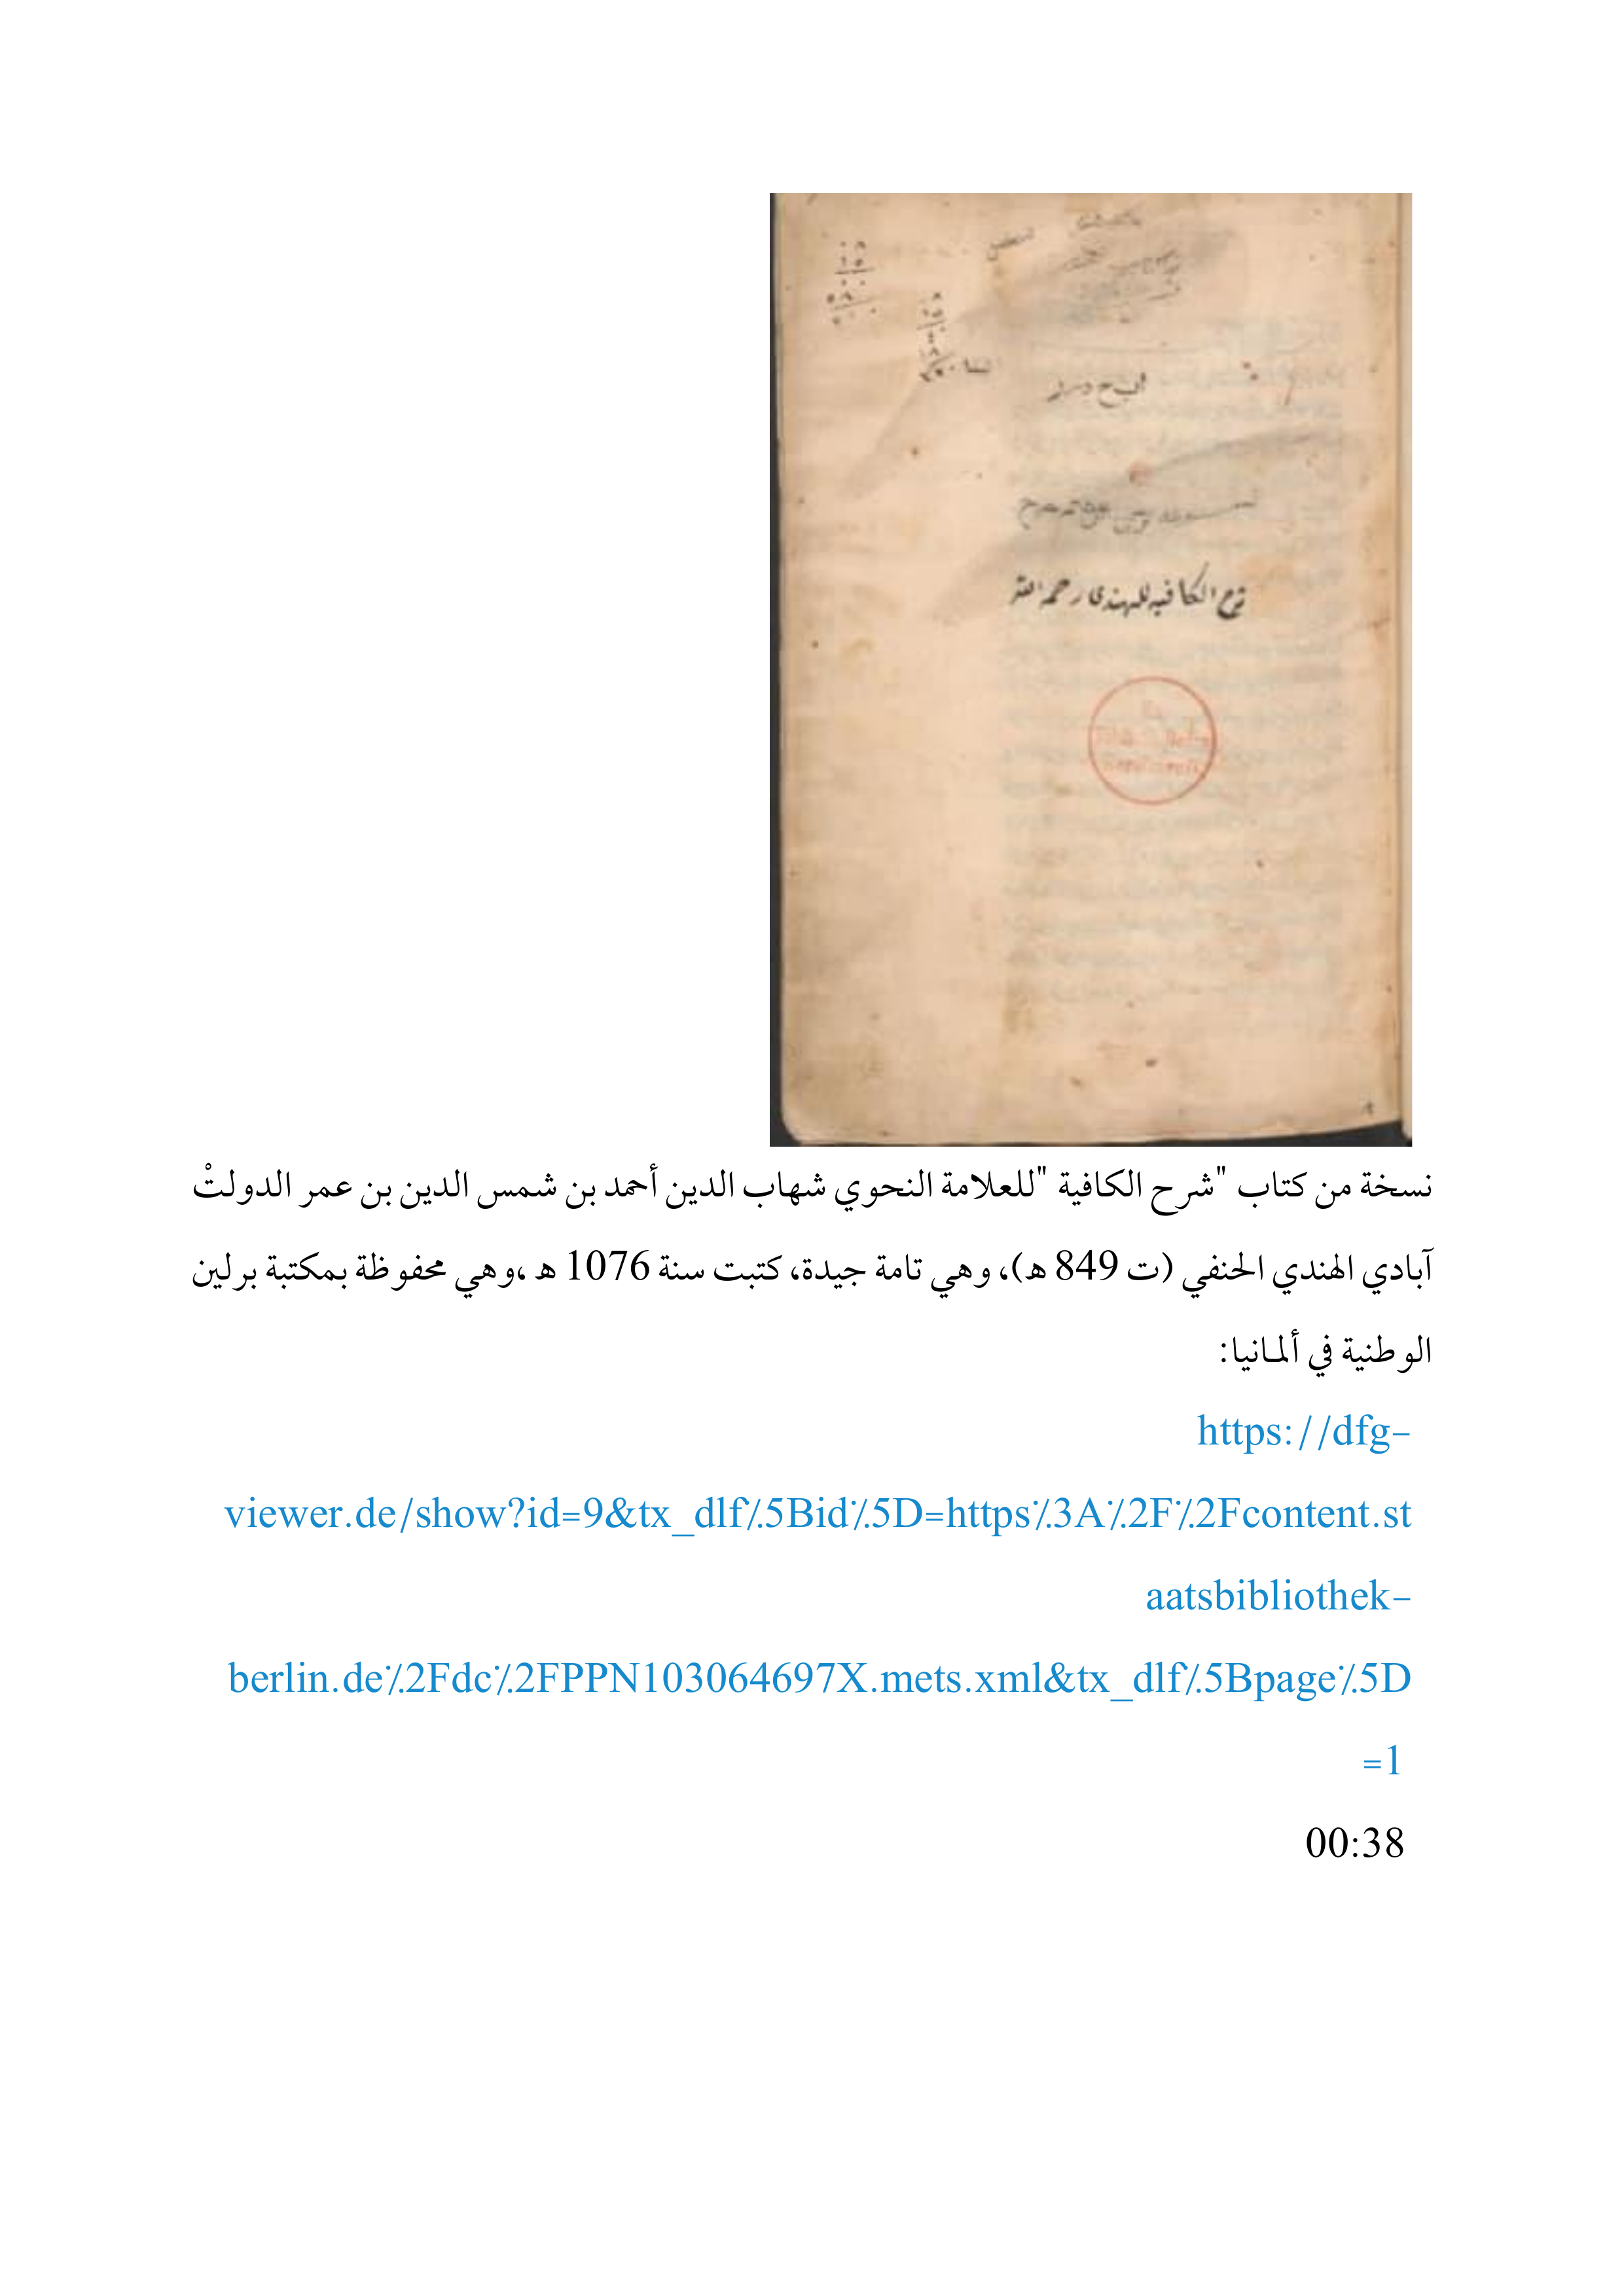 شرح الكافيه للهندى رحمه الله
نسخة من كتاب "شرح الكافية "للعلامة النحوي شهاب الدين أحمد بن شمس الدين بن عمر الدولتْ
آبادي الهندي الحنفي (ت 849 هـ)، وهي تامة جيدة، كتبت سنة 1076 هـ ،وهي محفوظة بمكتبة برلين
الوطنية في ألمانيا:
https://dfg-
viewer.de/show?id=9&tx_dlf٪5Bid٪5D=https٪3A٪2F٪2Fcontent.st
aatsbibliothek-
berlin.de٪2Fdc٪2FPPN103064697X.mets.xml&tx_dlf٪5Bpage٪5D
=1
00:38